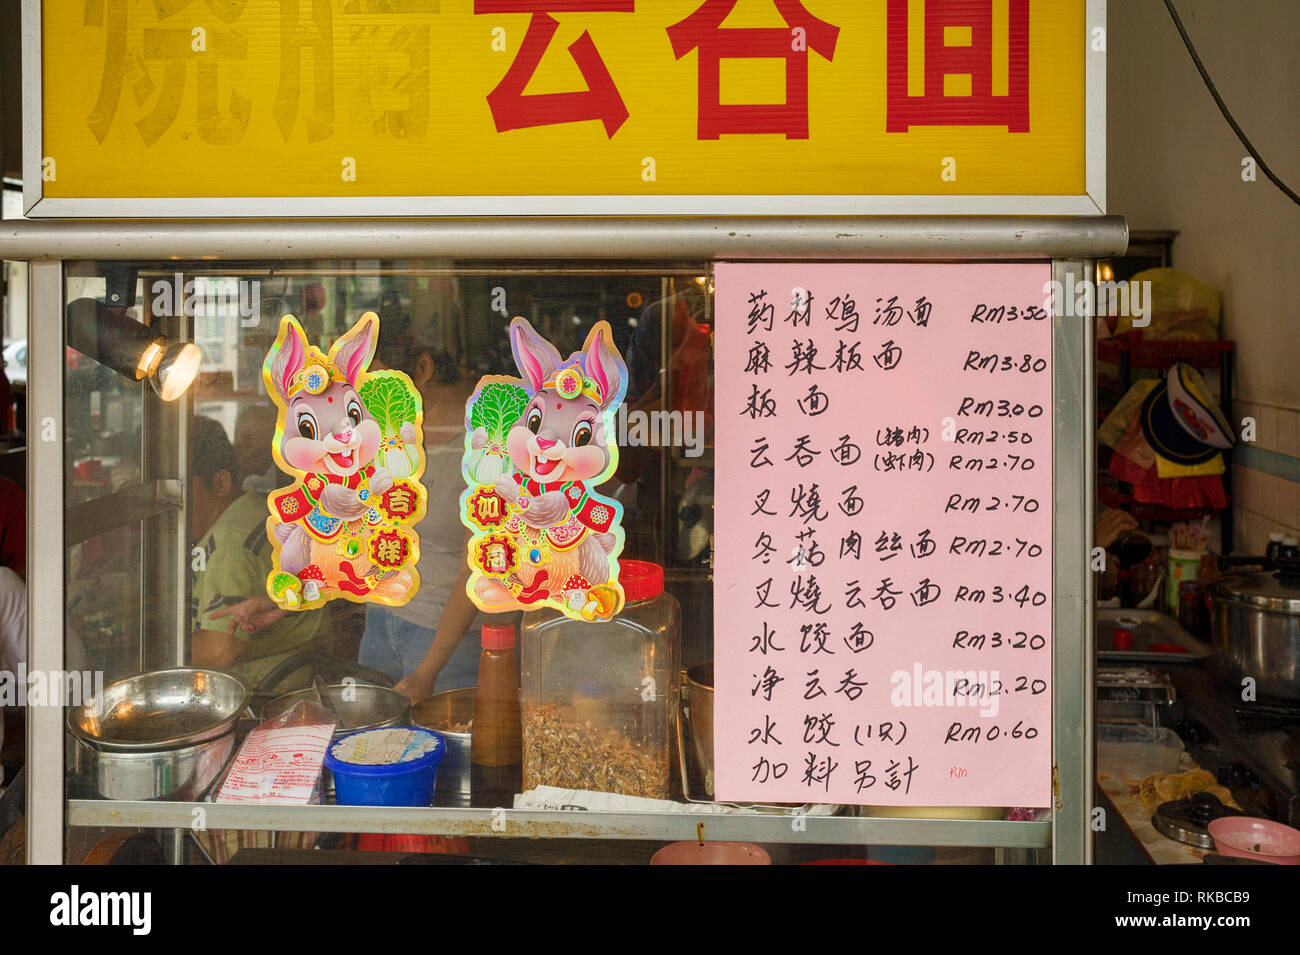 烧腊 云吞面
药材鸡汤面 RM3.50
麻辣板面 RM3.80
板面 RM3.00
云吞面 (猪肉) RM2.50
(虾肉) RM2.70
叉燒面 RM2.70
冬菇肉丝面 RM2.70
叉燒云吞面 RM3.40
水饺面 RM3.20
净云吞 RM2.20
水饺(1只) RM0.60
加料另計 RM
吉祥
如意
alamy
Image ID: RKBCB9
www.alamy.com